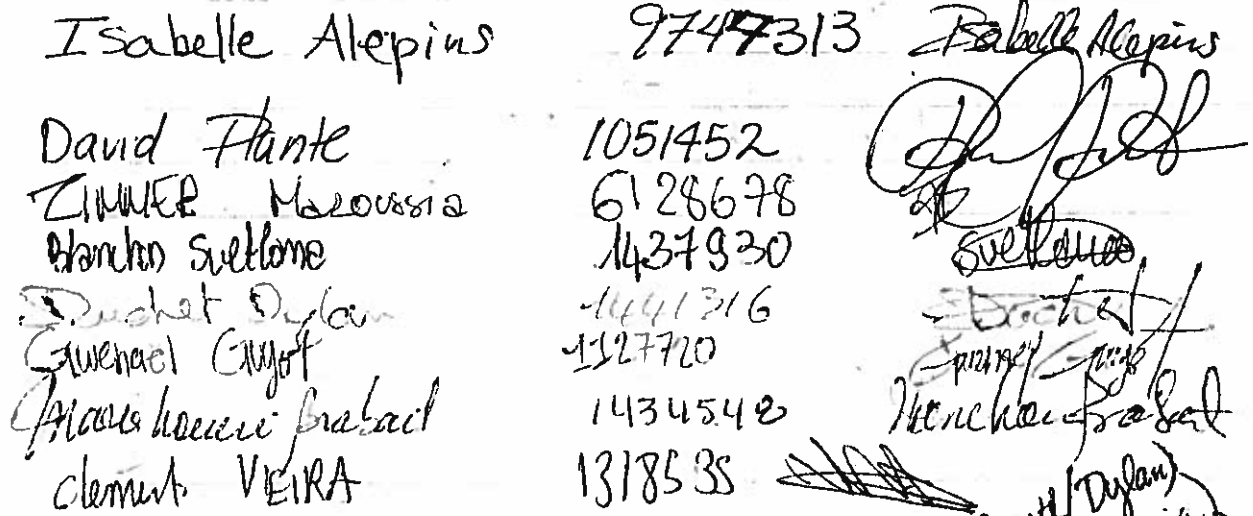 Isabelle Alepins 9747313 Isabelle Alepins
David Plante 1051452
ZIMMER Maroussia 6128678
Blanchin Svetlana 1437930 Svetlana
Duchet Dylan 1441316 Duchet
Gwenael Guyot 1127720 Guyot
1434542
Clement VEIRA 1318535
(Dylan)